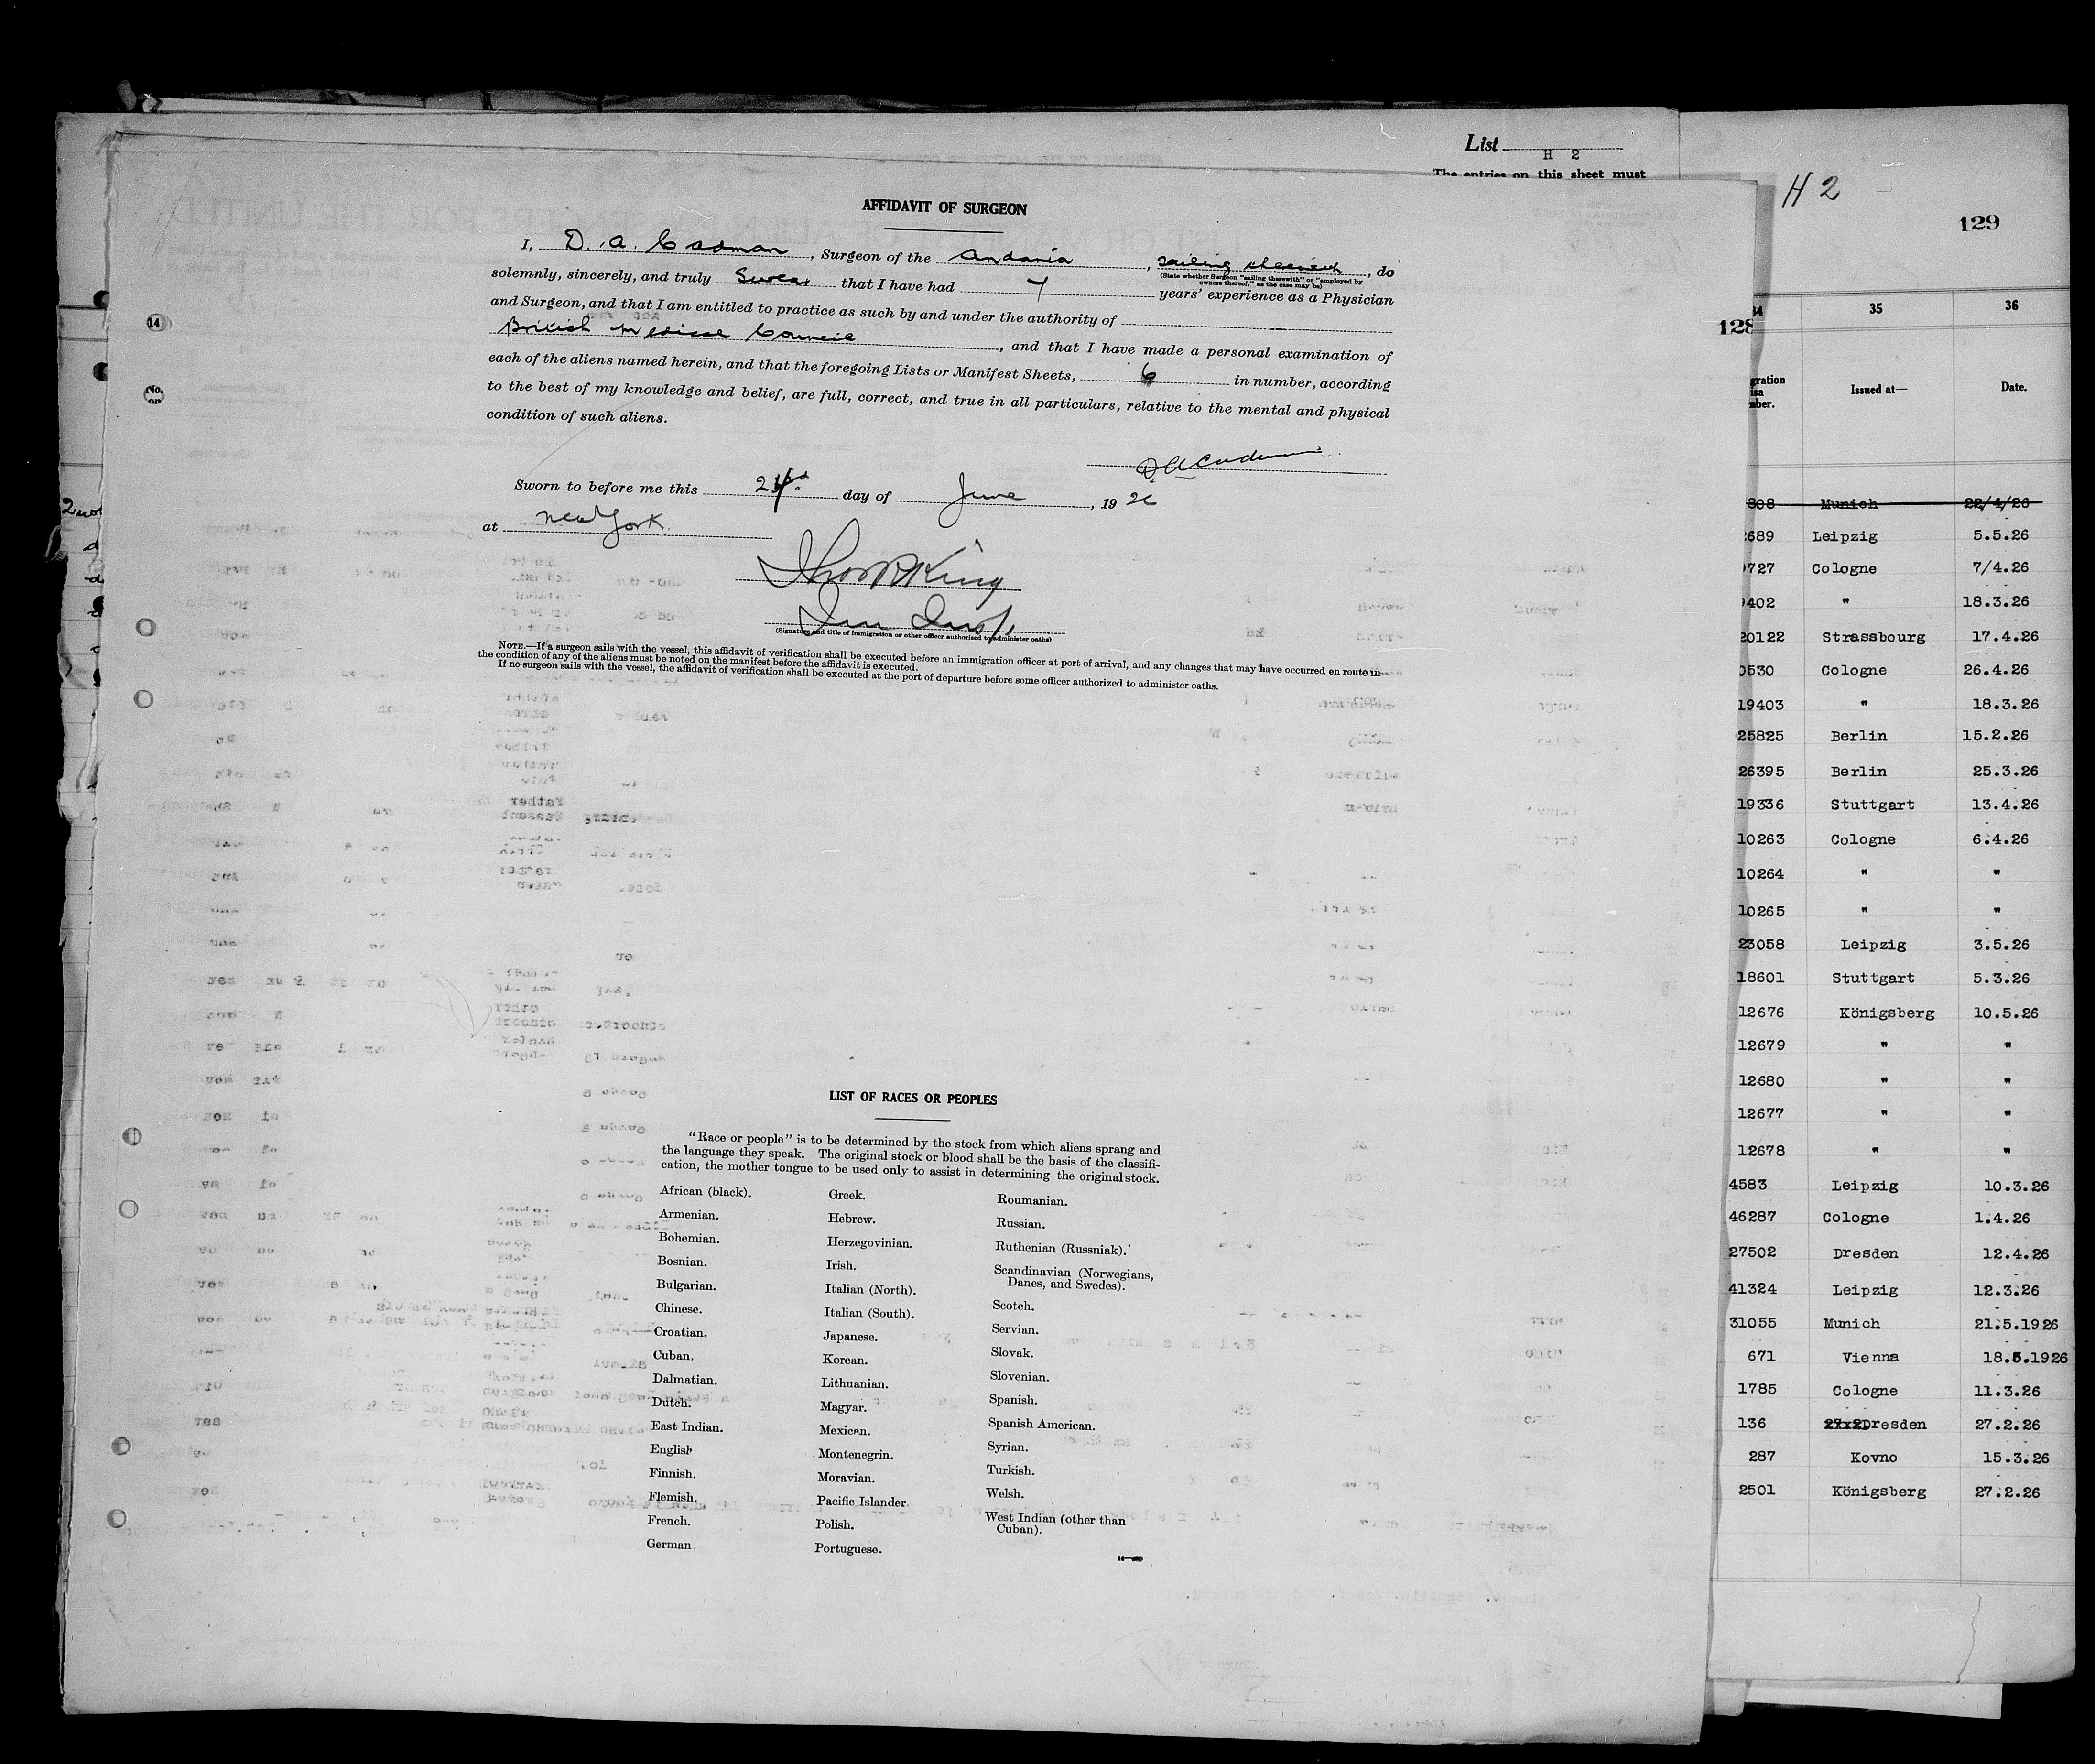 List H 2
The entries on this sheet must
H 2
129
AFFIDAVIT OF SURGEON
I, D. A. Cadman, Surgeon of the Andania, sailing therewith, do
(State whether Surgeon "sailing therewith" or "employed by
owners thereof," as the case may be)
solemnly, sincerely, and truly Swear that I have had 7 years' experience as a Physician
and Surgeon, and that I am entitled to practice as such by and under the authority of
British Medical Council, and that I have made a personal examination of
each of the aliens named herein, and that the foregoing Lists or Manifest Sheets, 6 in number, according
to the best of my knowledge and belief, are full, correct, and true in all particulars, relative to the mental and physical
condition of such aliens.
D A Cadman
Sworn to before me this day of June, 1926
at New York.
Thos R King
Imm Insp.
(Signature and title of immigration or other officer authorized to administer oaths)
NOTE.—If a surgeon sails with the vessel, this affidavit of verification shall be executed before an immigration officer at port of arrival, and any changes that may have occurred en route in
the condition of any of the aliens must be noted on the manifest before the affidavit is executed.
If no surgeon sails with the vessel, the affidavit of verification shall be executed at the port of departure before some officer authorized to administer oaths.
LIST OF RACES OR PEOPLES
"Race or people" is to be determined by the stock from which aliens sprang and
the language they speak. The original stock or blood shall be the basis of the classifi-
cation, the mother tongue to be used only to assist in determining the original stock.
African (black).
Armenian.
Bohemian.
Bosnian.
Bulgarian.
Chinese.
Croatian.
Cuban.
Dalmatian.
Dutch.
East Indian.
English
Finnish.
Flemish.
French.
German
Greek.
Hebrew.
Herzegovinian.
Irish.
Italian (North).
Italian (South).
Japanese.
Korean.
Lithuanian.
Magyar.
Mexican.
Montenegrin.
Moravian.
Pacific Islander.
Polish.
Portuguese.
Roumanian.
Russian.
Ruthenian (Russniak).
Scandinavian (Norwegians,
Danes, and Swedes).
Scotch.
Servian.
Slovak.
Slovenian.
Spanish.
Spanish American.
Syrian.
Turkish.
Welsh.
West Indian (other than
Cuban).
14
No.
128
34 35 36
gration
isa
mber.
Issued at—
Date.
808 Munich 22/4/26
689 Leipzig 5.5.26
727 Cologne 7/4.26
402 " 18.3.26
20122 Strassbourg 17.4.26
0530 Cologne 26.4.26
19403 " 18.3.26
25825 Berlin 15.2.26
26395 Berlin 25.3.26
19336 Stuttgart 13.4.26
10263 Cologne 6.4.26
10264 " "
10265 " "
23058 Leipzig 3.5.26
18601 Stuttgart 5.3.26
12676 Königsberg 10.5.26
12679 " "
12680 " "
12677 " "
12678 " "
4583 Leipzig 10.3.26
46287 Cologne 1.4.26
27502 Dresden 12.4.26
41324 Leipzig 12.3.26
31055 Munich 21.5.1926
671 Vienna 18.5.1926
1785 Cologne 11.3.26
136 Dresden 27.2.26
287 Kovno 15.3.26
2501 Königsberg 27.2.26